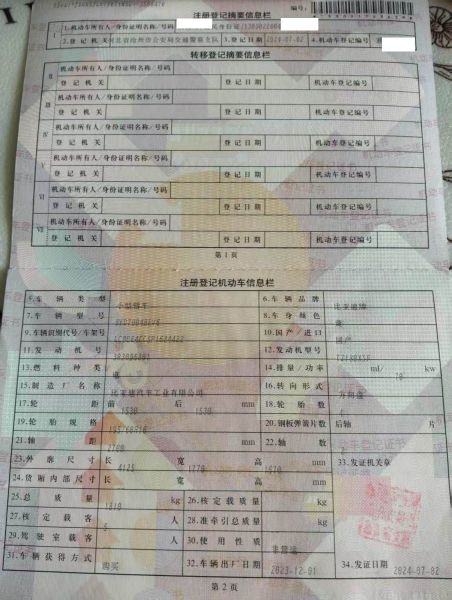 注册登记摘要信息栏
编号:
I
1.机动车所有人/身份证明名称/号码
2.登记机关 河北省沧州市公安局交通警察支队 3.登记日期 2024-07-02 4.机动车登记编号
转移登记摘要信息栏
II 机动车所有人/身份证明名称/号码
登记机关 登记日期 机动车登记编号
III 机动车所有人/身份证明名称/号码
登记机关 登记日期 机动车登记编号
IV 机动车所有人/身份证明名称/号码
登记机关 登记日期 机动车登记编号
机动车所有人/身份证明名称/号码
登记机关 登记日期 机动车登记编号
VI 机动车所有人/身份证明名称/号码
登记机关 登记日期 机动车登记编号
VII 机动车所有人/身份证明名称/号码
登记机关 登记日期 机动车登记编号
第1页
注册登记机动车信息栏
5.车辆类型 小型轿车 6.车辆品牌 比亚迪牌
7.车辆型号 8.车身颜色
9.车辆识别代号/车架号 10.国产/进口 国产
11.发动机号 12.发动机型号
13.燃料种类 电 14.排量/功率 ml/ 70 kw
15.制造厂名称 比亚迪汽车工业有限公司 16.转向形式 方向盘
17.轮距 前 1530 后 1530 mm 18.轮胎数 4
19.轮胎规格 195/60R16 20.钢板弹簧片数 后轴 片
21.轴距 2700 mm 22.轴数 2
23.外廓尺寸 长 4125 宽 1770 高 1570 mm 33.发证机关章
24.货厢内部尺寸 长 宽 高 mm
25.总质量 kg 26.核定载质量 kg
27.核定载客 5 人 28.准牵引总质量 kg
29.驾驶室载客 人 30.使用性质 非营运
31.车辆获得方式 购买 32.车辆出厂日期 2023-12-01 34.发证日期 2024-07-02
第2页